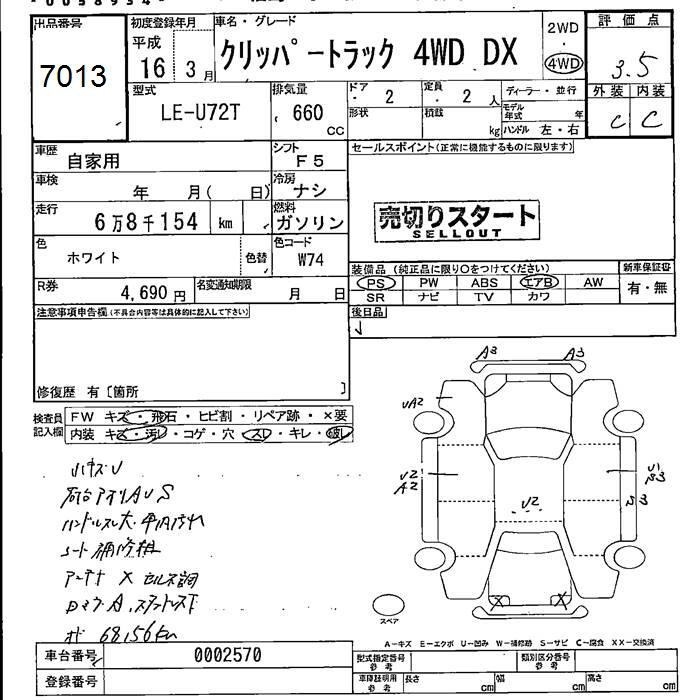 出品番号
7013
初度登録年月
平成
16 3月
車名・グレード
クリッパートラック 4WD DX
2WD
・
4WD
評価点
3.5
外装 内装
C C
型式
LE-U72T
排気量
660
CC
ドア
・ 2
定員
・ 2 人
形状
積載
kg
ディーラー・並行
モデル年式 年
ハンドル 左・右
車歴
自家用
シフト
F5
セールスポイント(正常に機能するものに限ります)
車検
年 月( 日)
冷房
ナシ
走行
6万8千154 km
燃料
ガソリン
売切りスタート
SELLOUT
色
ホワイト
色替
色コード
W74
装備品 (純正品に限り○をつけてください)
新車保証書
PS PW ABS エアB AW
有・無
SR ナビ TV カワ
R券
4,690 円
名変通知期限
月 日
後日品
注意事項申告欄(不具合内容等は具体的に記入して下さい)
修復歴 有〔箇所 〕
検査員
記入欄
FW キズ・飛石・ヒビ割・リペア跡・×要
内装 キズ・汚レ・コゲ・穴・スレ・キレ・破レ
A3 A3
UA2
U2
A2
U2
S3
シート補修粗
スペア
A-キズ E-エクボ U-凹み W-補修跡 S-サビ C-腐食 XX-交換済
車台番号
0002570
登録番号
型式指定番号
参考
類別区分番号
参考
車庫証明用
参考
長さ cm
幅 cm
高さ cm